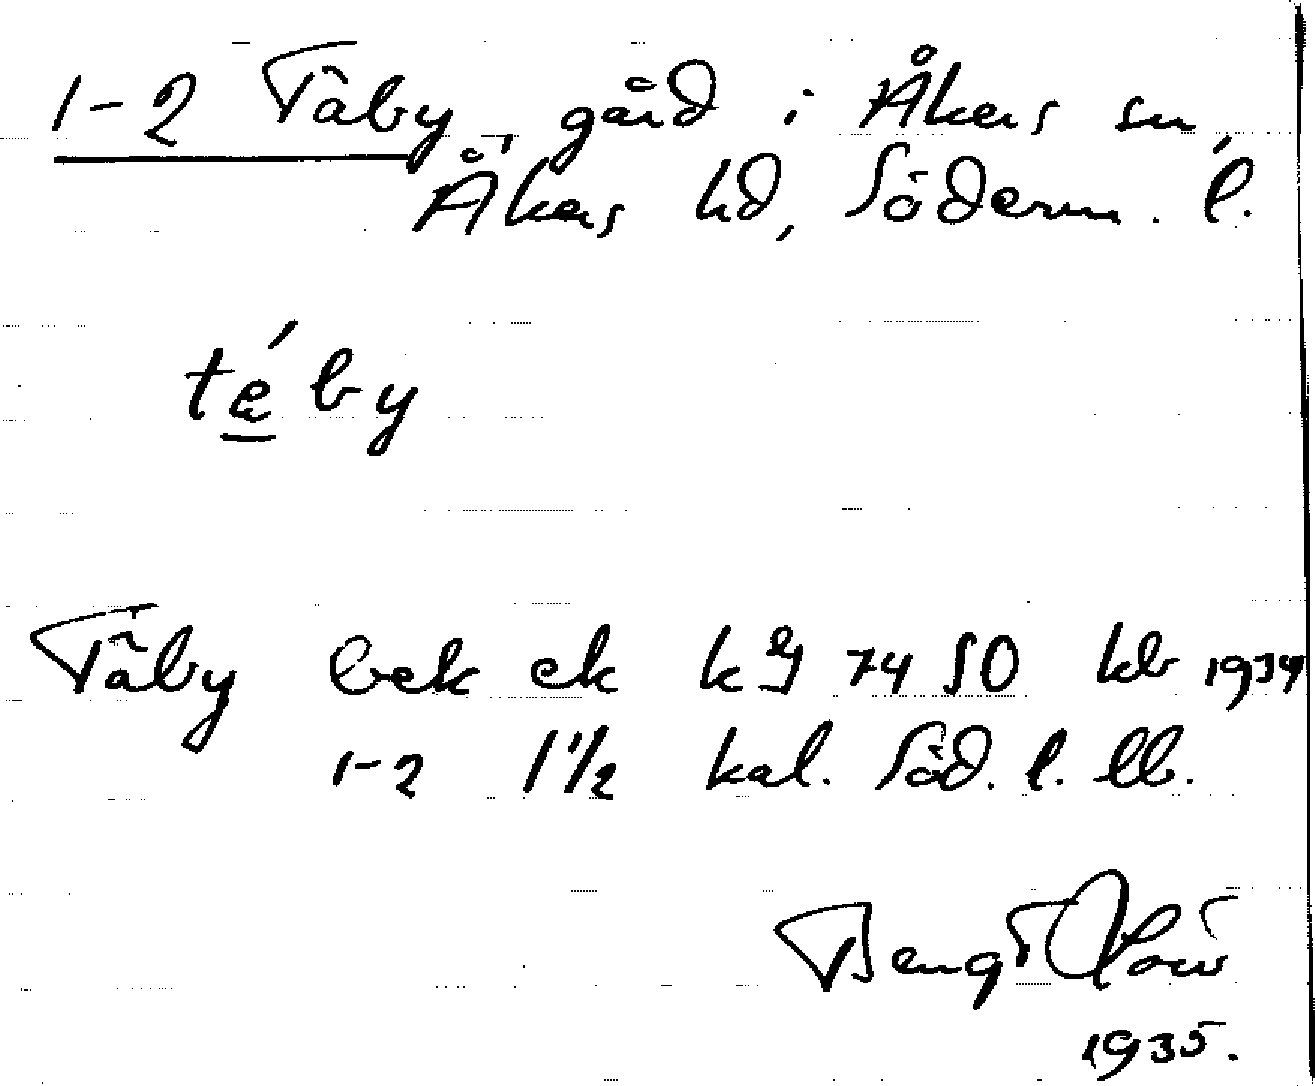 1-2 Täby, gård i Åkers sn,
Åkers hd, Söderm. l.
té̱by
Täby bek ek kg 74 50 kb 1934
1-2 1 1/2 kal. Söd. l. lb.
Bengt
1935.